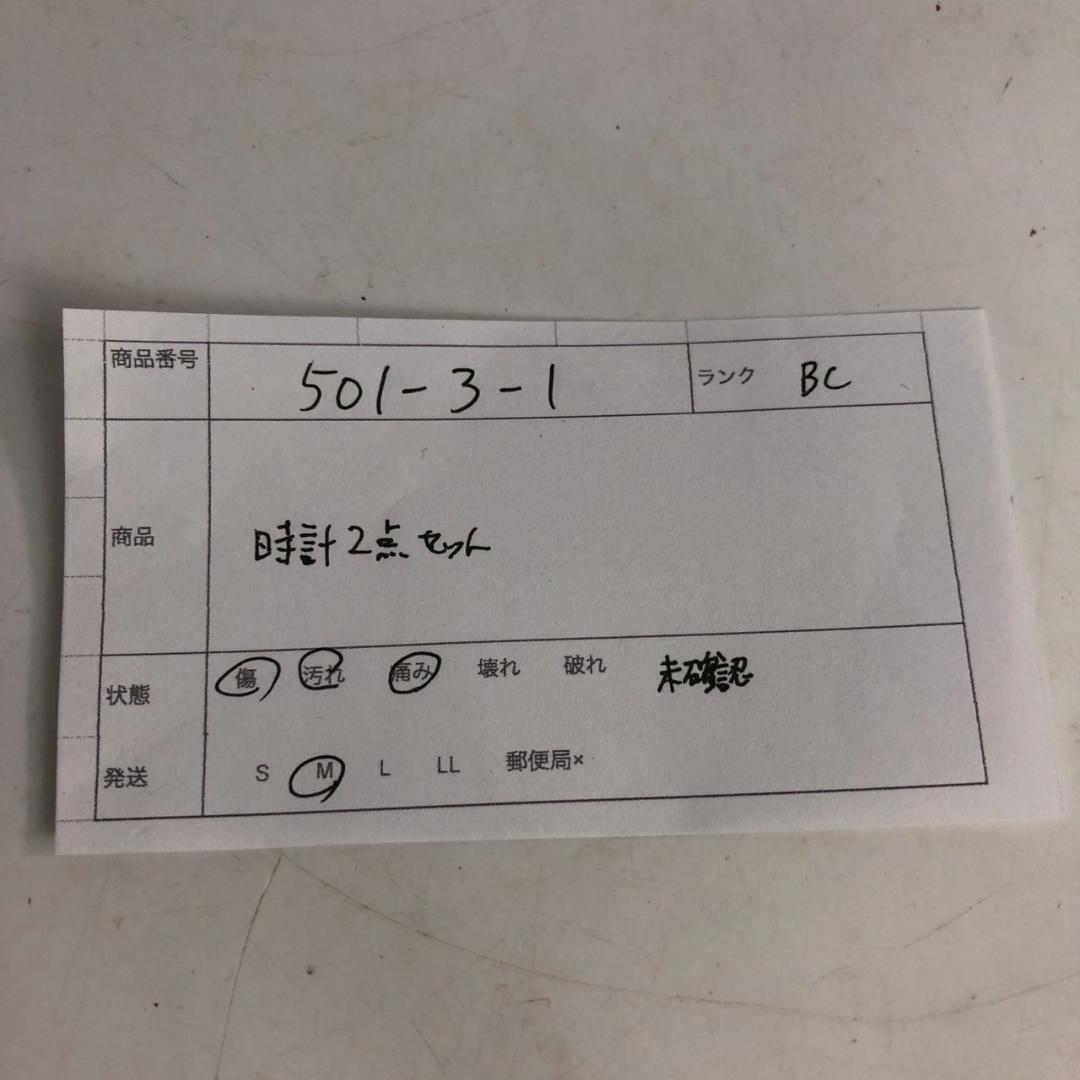 商品番号 501-3-1 ランク BC
商品 時計2点セット
状態 傷 汚れ 痛み 壊れ 破れ 未確認
発送 S M L LL 郵便局×